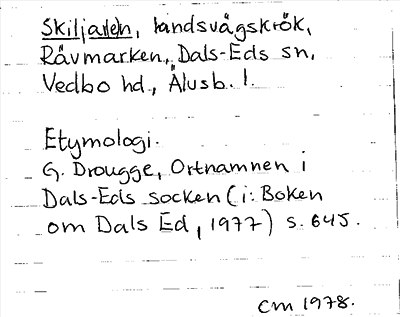 Skiljaren, landsvägskrök,
Rävmarken, Dals-Eds sn,
Vedbo hd., Älvsb. l.
Etymologi.
G. Drougge, Ortnamnen i
Dals-Eds socken (i: Boken
om Dals Ed, 1977) s. 645.
CM 1978.